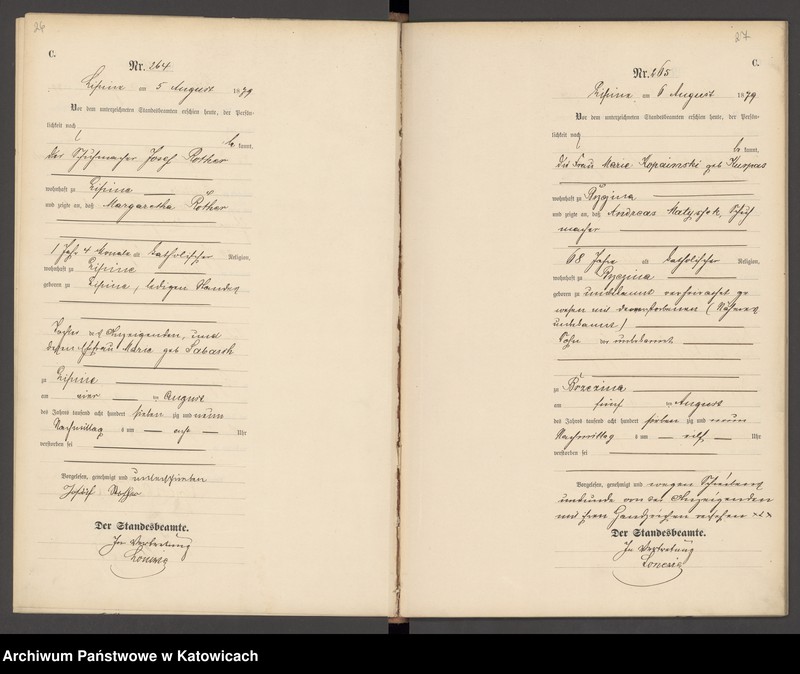 26
C.
Nr. 264
Lipine am 5 August 1879
Vor dem unterzeichneten Standesbeamten erschien heute, der Persön-
lichkeit nach
be kannt,
der Schuhmacher Josef Rother
wohnhaft zu Lipine
und zeigte an, daß Margaretha Rother
1 Jahr 4 Monate alt katholischer Religion,
wohnhaft zu Lipine
geboren zu Lipine, ledigen Standes
Tochter des Anzeigenden, und
dessen Ehefrau Marie geb
zu Lipine
am vier ten August
des Jahres tausend acht hundert sieben zig und neun
Nachmittag s um acht Uhr
verstorben sei
Vorgelesen, genehmigt und unterschrieben
Josef Rother
Der Standesbeamte.
In Vertretung
27
C.
Nr. 265
Lipine am 6 August 1879
Vor dem unterzeichneten Standesbeamten erschien heute, der Persön-
lichkeit nach
be kannt,
die Frau Marie geb
wohnhaft zu
und zeigte an, daß Andreas Matyssek, Schuh
macher
68 Jahre alt katholischer Religion,
wohnhaft zu
geboren zu unbekannt verheirathet ge
wesen mit der verstorbenen (Näheres
unbekannt)
Sohn der unbekannt
zu Brzezina
am fünf ten August
des Jahres tausend acht hundert sieben zig und neun
Nachmittag s um elf Uhr
verstorben sei
Vorgelesen, genehmigt und wegen Schreibens
unkunde von der Anzeigenden
mit ihrem Handzeichen versehen +++
Der Standesbeamte.
In Vertretung
Archiwum Państwowe w Katowicach